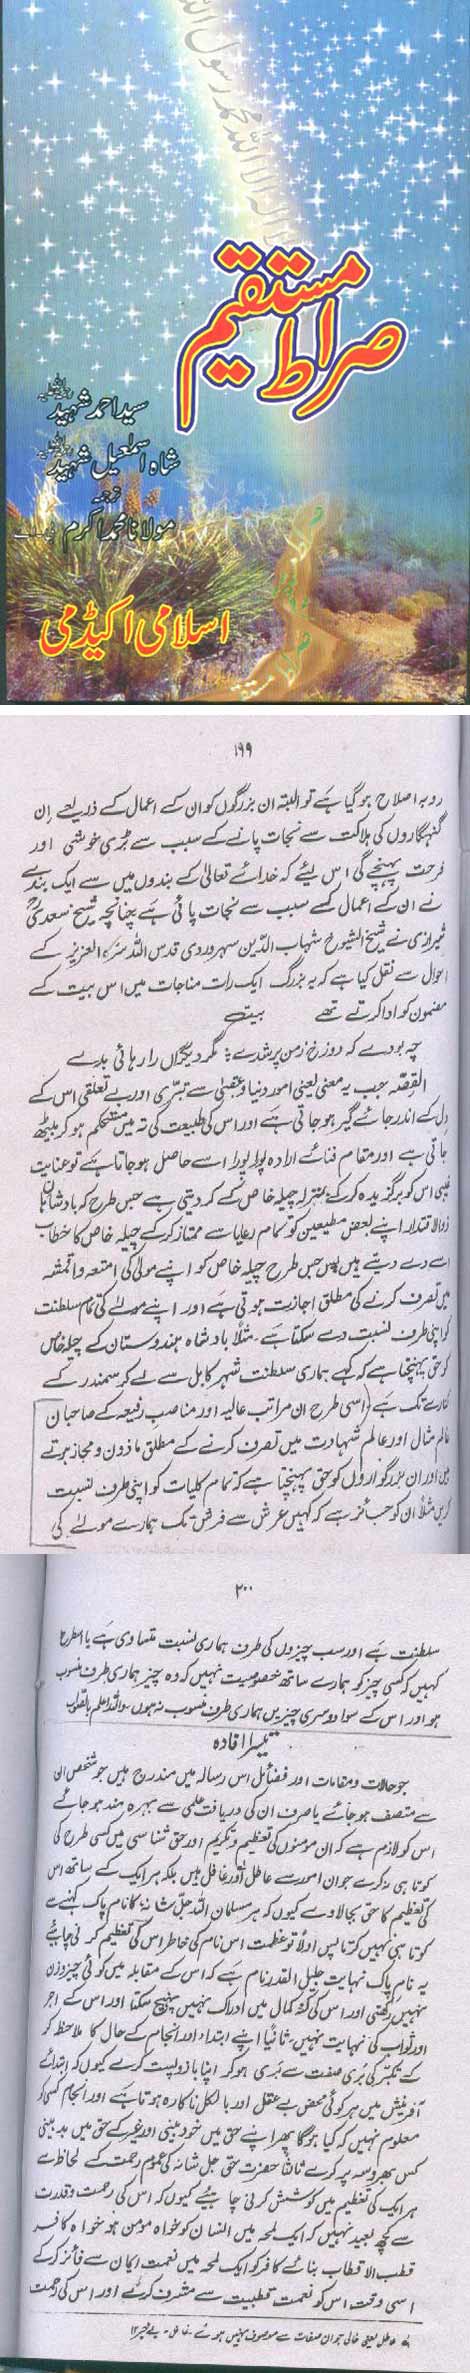 لا اله الا الله محمد رسول الله
صراط مستقیم
سید احمد شہید
شاہ اسمٰعیل شہید
ترجمہ
مولانا محمد اکرم
اسلامی اکیڈمی
صراط مستقیم
۱۹۹
روبہ اصلاح ہوگیا ہے تو البتہ ان بزرگوں کو ان کے اعمال کے ذریعے اِن
گنہگاروں کی ہلاکت سے نجات پانے کے سبب سے بڑی خوشی اور
فرحت پہنچے گی اس لیئے کہ خدائے تعالیٰ کے بندوں میں سے ایک بندے
نے ان کے اعمال کے سبب سے نجات پائی ہے چنانچہ شیخ سعدی
شیرازی نے شیخ الشیوخ شہاب الدّین سہروردی قدس اللہ سرہ العزیز کے
احوال سے نقل کیا ہے کہ یہ بزرگ ایک رات مناجات میں اس بیت کے
مضمون کو ادا کرتے تھے بیت
چہ بودے کہ دوزخ زمن پُر شدے ؛ مگر دیگراں را رہائی بدے
القِصّہ جب یہ معنی یعنی امور دنیا و عقبیٰ سے تبرّی اور بے تعلقی اس کے
دِل کے اندر جائے گیر ہو جاتی ہے اور اس کی طبیعت کی تہ میں مستحکم ہو کر بیٹھ
جاتی ہے اور مقام فنائے ارادہ پورا پورا اسے حاصل ہو جاتا ہے تو عنایت
غیبی اس کو برگزیدہ کرکے بمنزلہ چیلہ خاص کے کر دیتی ہے جس طرح کہ بادشاہان
ذوالاقتدار اپنے بعض مطیعین کو تمام رعایا سے ممتاز کرکے چیلہ خاص کا خطاب
اسے دے دیتے ہیں پس جس طرح چیلہ خاص کو اپنے مولیٰ کی امتعہ و اقمشہ
میں تصرف کرنے کی مطلق اجازت ہوتی ہے اور اپنے مولےٰ کی تمام سلطنت
کو اپنی طرف نسبت دے سکتا ہے۔ مثلاً بادشاہ ہندوستان کے چیلہ خاص
کو حق پہنچتا ہے کہ کہے ہماری سلطنت شہر کابل سے لے کر سمندر کے
کنارے تک ہے اسی طرح ان مراتب عالیہ اور مناصب رفیعہ کے صاحبان
عالم مثال اور عالم شہادت میں تصرف کرنے کے مطلق ماذون و مجاز ہوتے
ہیں اور ان بزرگواروں کو حق پہنچتا ہے کہ تمام کلیات کو اپنی طرف نسبت
کریں مثلاً ان کو جائز ہے کہ کہیں عرش سے فرش تک ہمارے مولےٰ کی
۲۰۰
سلطنت ہے اور سب چیزوں کی طرف ہماری نسبت متساوی ہے یا اسطرح
کہیں کہ کسی چیز کو ہمارے ساتھ خصوصیت نہیں کہ وہ چیز ہماری طرف منسوب
ہو اور اس کے سوا دوسری چیزیں ہماری طرف منسوب نہ ہوں۔ واللہ اعلم بالقلوب
تیسرا افادہ
جو حالات و مقامات اور فضائل اس رسالہ میں مندرج ہیں جو شخص ان
سے متصف ہو جائے یا صرف ان کی دریافت علمی سے بہرہ مند ہو جائے
اس کو لازم ہے کہ ان مومنوں کی تعظیم و تکریم اور حق شناسی میں کسی طرح کی
کوتاہی نہ کرے جو ان امور سے عاطل اور غافل ہیں بلکہ ہر ایک کے ساتھ اس
کی تعظیم کا حق بجالاوے کیوں کہ ہر مسلمان اللہ جلّ شانہٗ کا نام پاک کہنے سے
کوتاہی نہیں کرتا پس اولاً تو عظمت اس نام کی خاطر اس کی تعظیم کرنی چاہیئے
یہ نام پاک نہایت جلیل القدر نام ہے کہ اس کے مقابلہ میں کوئی چیز وزن
نہیں رکھتی اور اس کی کنہ کمال میں ادراک نہیں پہنچ سکتا اور اس کے اجر
اور ثواب کی نہایت نہیں۔ ثانیاً اپنے ابتداء اور انجام کے حال کا ملاحظہ کر
کے تکبّر کی بُری صفت سے بری ہو کر اپنا بازو پست کرے کیوں کہ ابتدائے
آفرینش میں ہر کوئی محض بے عقل اور بالکل ناکارہ ہوتا ہے اور انجام کسی کو
معلوم نہیں کہ کیا ہوگا پھر اپنے حق میں خود بینی اور غیر کے حق میں بد بینی
کس بھروسہ پر کرے ثالثاً حضرت حق جل شانہ کی عموم رحمت کے لحاظ سے
ہر ایک کی تعظیم میں کوشش کرنی چاہیئے کیوں کہ اس کی رحمت و قدرت
سے کچھ بعید نہیں کہ ایک لمحہ میں انسان کو خواہ مومن ہو خواہ کافر
قطب الاقطاب بنائے کافر کو ایک لمحہ میں نعمت ایمان سے فائز کرکے
اسی وقت اس کو نعمت قطبیت سے مشرف کرلے اور اس کی رحمت
عاطل یعنی خالی جو ان صفات سے موصوف نہیں ہوئے۔ غافل۔ بے خبر ۱۲